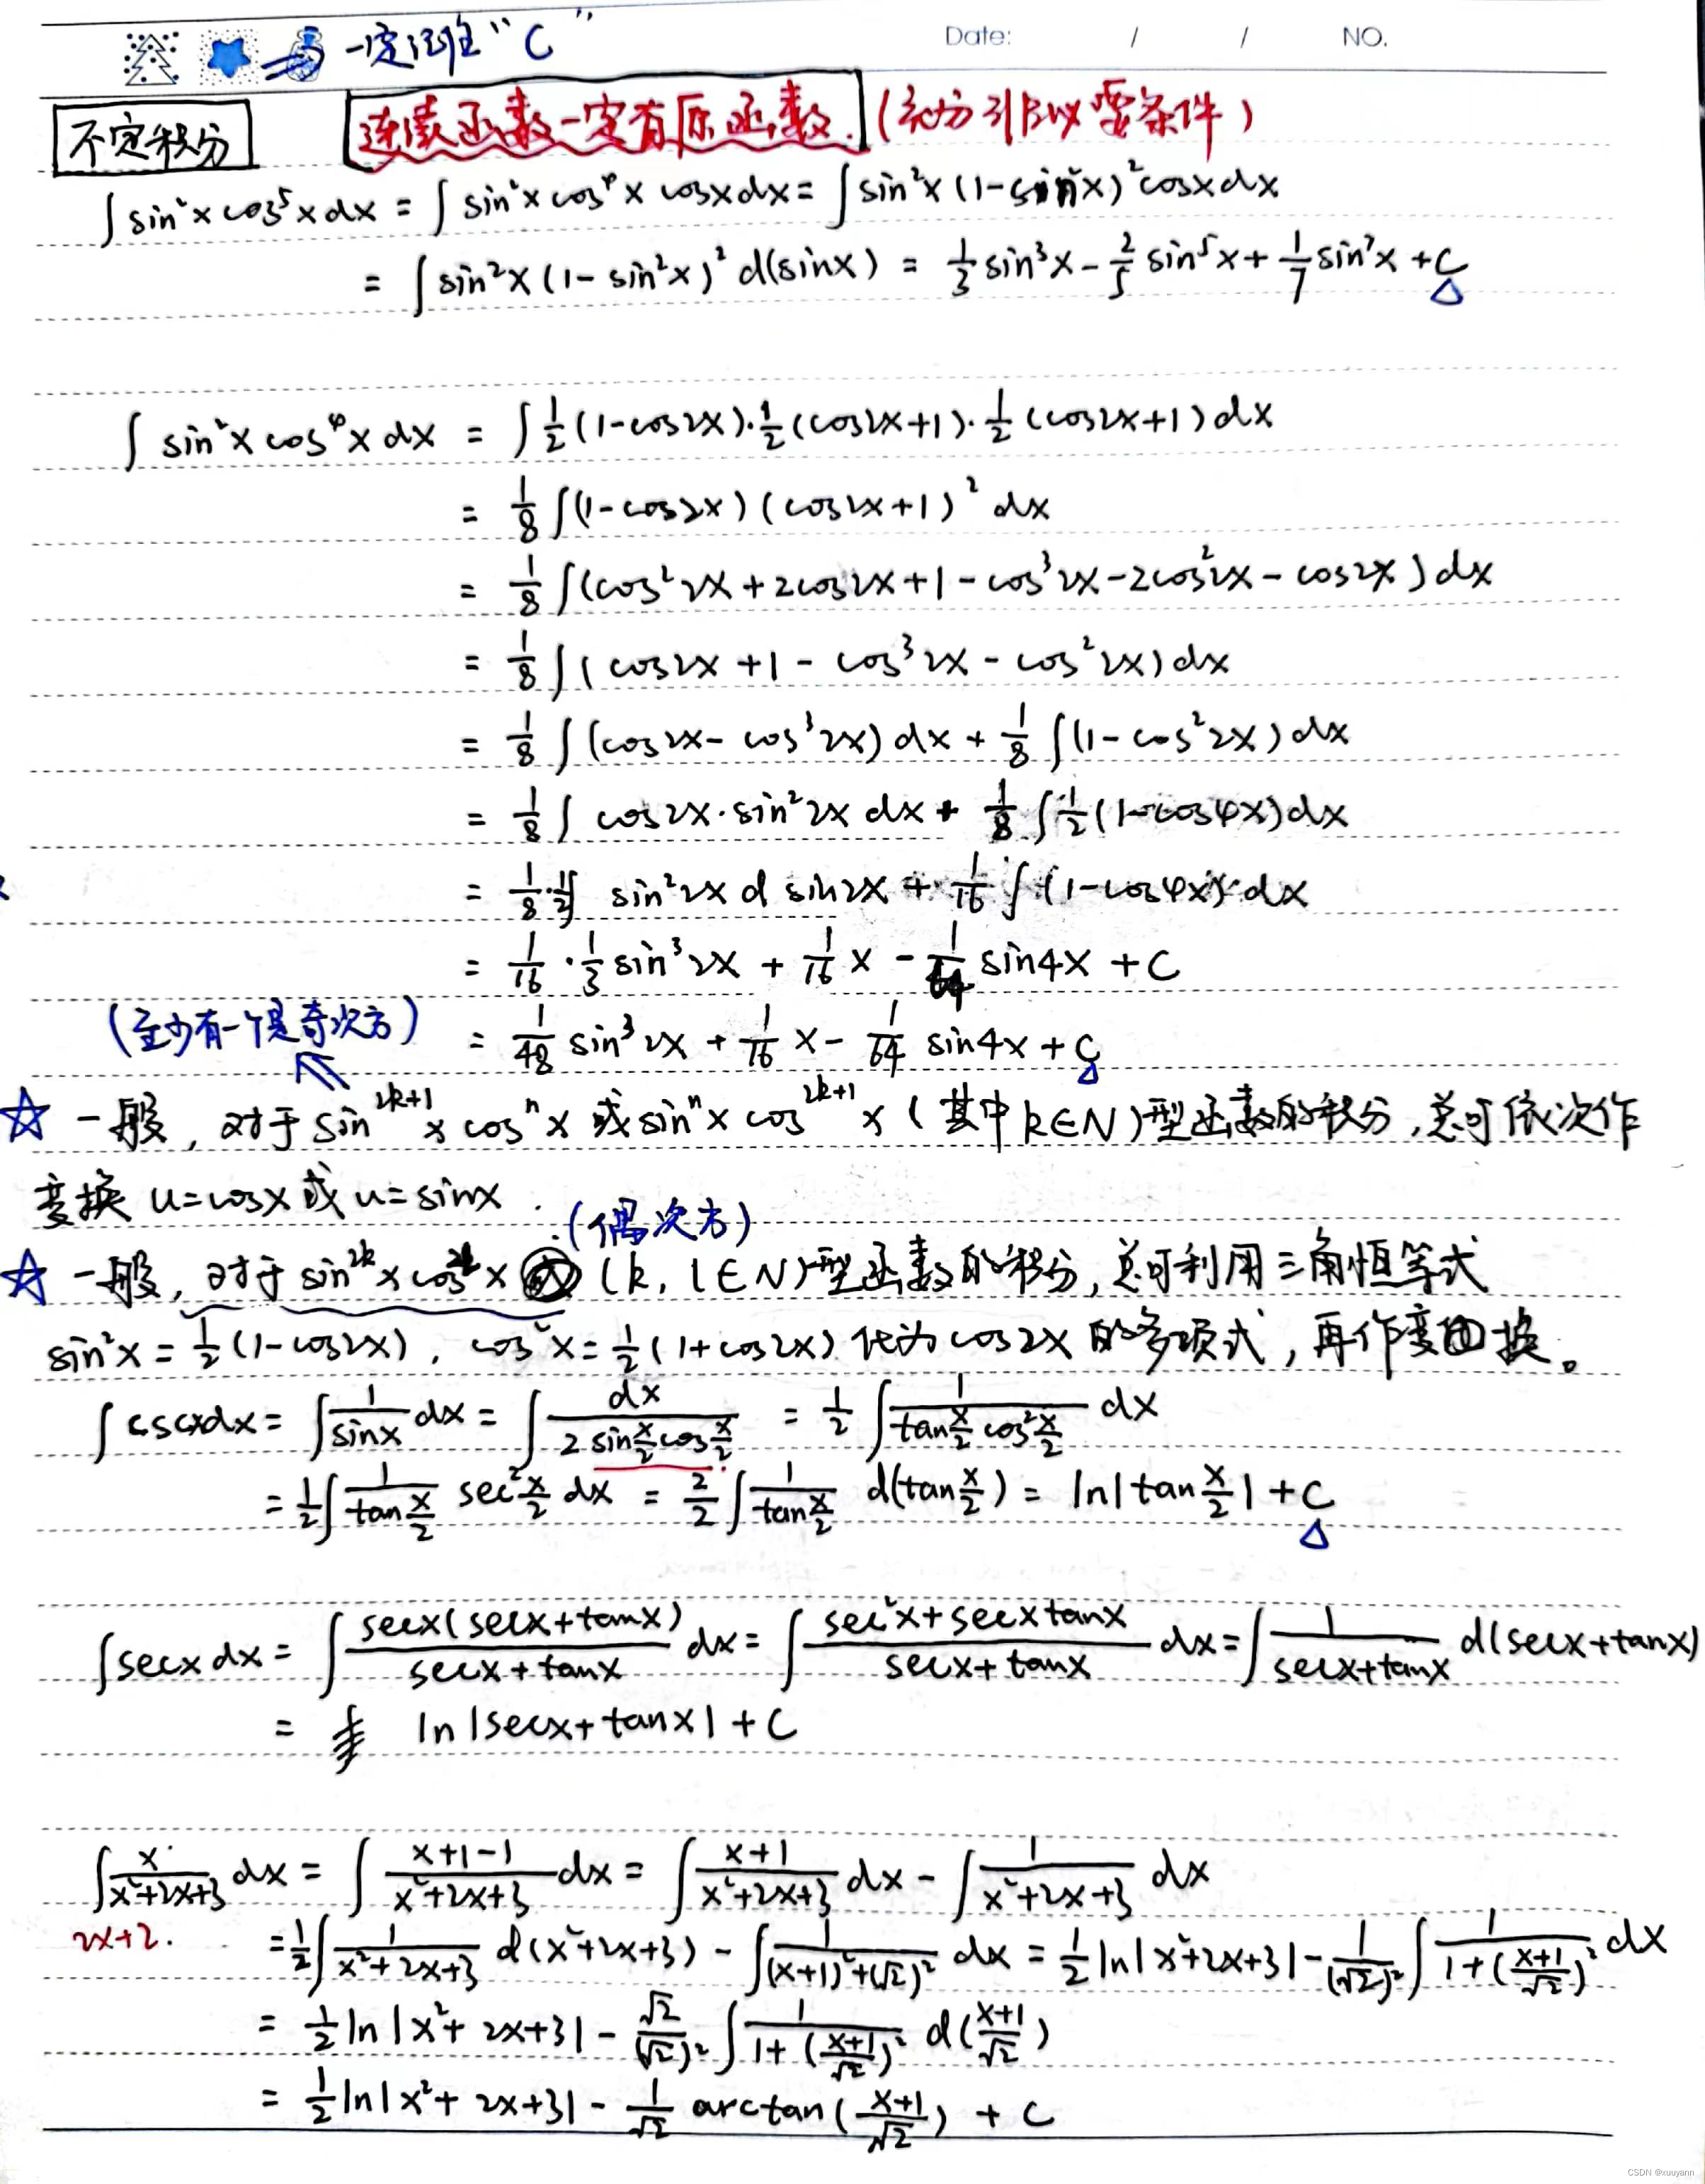 一定记住“C” Date: / / NO.
不定积分 连续函数一定有原函数.(充分非必要条件)
∫sin²x cos⁵x dx = ∫ sin²x cos⁴x cosx dx = ∫ sin²x (1-sin²x)² cosx dx
= ∫ sin²x (1-sin²x)² d(sinx) = 1/3 sin³x - 2/5 sin⁵x + 1/7 sin⁷x + C
∫ sin²x cos⁴x dx = ∫ 1/2 (1-cos2x)·1/2 (cos2x+1)·1/2 (cos2x+1) dx
= 1/8 ∫(1-cos2x)(cos2x+1)² dx
= 1/8 ∫(cos²2x + 2cos2x + 1 - cos³2x - 2cos²2x - cos2x) dx
= 1/8 ∫(cos2x + 1 - cos³2x - cos²2x) dx
= 1/8 ∫(cos2x - cos³2x) dx + 1/8 ∫(1-cos²2x) dx
= 1/8 ∫ cos2x·sin²2x dx + 1/8 ∫ 1/2 (1-cos4x) dx
= 1/8·1/2 ∫ sin²2x d sin2x + 1/16 ∫ (1-cos4x) dx
= 1/16 · 1/3 sin³2x + 1/16 x - 1/64 sin4x + C
(至少有一个是奇次方) = 1/48 sin³2x + 1/16 x - 1/64 sin4x + C
☆ 一般, 对于 sin²ᵏ⁺¹x cosⁿx 或 sinⁿx cos²ᵏ⁺¹x (其中k∈N)型函数的积分,总可依次作
变换 u=cosx 或 u=sinx.
(偶次方)
☆ 一般, 对于 sin²ᵏx cos²ˡx (k, l∈N)型函数的积分,总可利用三角恒等式
sin²x = 1/2 (1-cos2x), cos²x = 1/2 (1+cos2x) 化为cos2x的多项式,再作变换。
∫cscxdx = ∫ 1/sinx dx = ∫ dx/(2 sin x/2 cos x/2) = 1/2 ∫ 1/(tan x/2 cos² x/2) dx
= 1/2 ∫ 1/(tan x/2) sec² x/2 dx = 2/2 ∫ 1/(tan x/2) d(tan x/2) = ln|tan x/2| + C
∫secx dx = ∫ secx(secx+tanx)/(secx+tanx) dx = ∫ (sec²x+secxtanx)/(secx+tanx) dx = ∫ 1/(secx+tanx) d(secx+tanx)
= ln|secx+tanx| + C
∫ x/(x²+2x+3) dx = ∫ (x+1-1)/(x²+2x+3) dx = ∫ (x+1)/(x²+2x+3) dx - ∫ 1/(x²+2x+3) dx
2x+2. = 1/2 ∫ 1/(x²+2x+3) d(x²+2x+3) - ∫ 1/((x+1)²+(√2)²) dx = 1/2 ln|x²+2x+3| - 1/(√2)² ∫ 1/(1+((x+1)/√2)²) dx
= 1/2 ln|x²+2x+3| - √2/(√2)² ∫ 1/(1+((x+1)/√2)²) d((x+1)/√2)
= 1/2 ln|x²+2x+3| - 1/√2 arctan((x+1)/√2) + C
CSDN @xuuyann